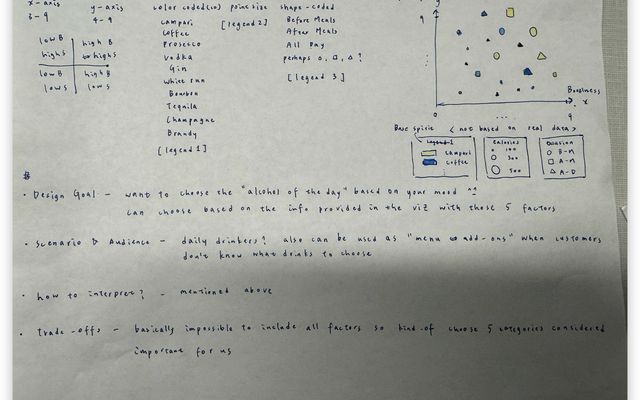 x-axis
3-9
low B
high S
high B
high S
low B
low S
high B
low S
y-axis
4-9
color coded(10)
Campari
Coffee
Prosecco
Vodka
Gin
White rum
Bourbon
Tequila
Champagne
Brandy
[legend 1]
point size
[legend 2]
shape-coded
Before Meals
After Meals
All Day
perhaps O, □, △?
[legend 3]
y
9
Booziness
x
...
9
Base spirit
< not based on real data>
Legend 1
Campari
Coffee
Calories
100
300
500
Occasion
O B-M
□ A-M
△ A-D
#
· Design Goal - want to choose the "alcohol of the day" based on your mood ^^
can choose based on the info provided in the viz with those 5 factors
· Scenario & Audience - daily drinkers? also can be used as "menu add-ons" when customers
don't know what drinks to choose
· how to interpret? - mentioned above
· trade-offs - basically impossible to include all factors so kind-of choose 5 categories considered
important for us